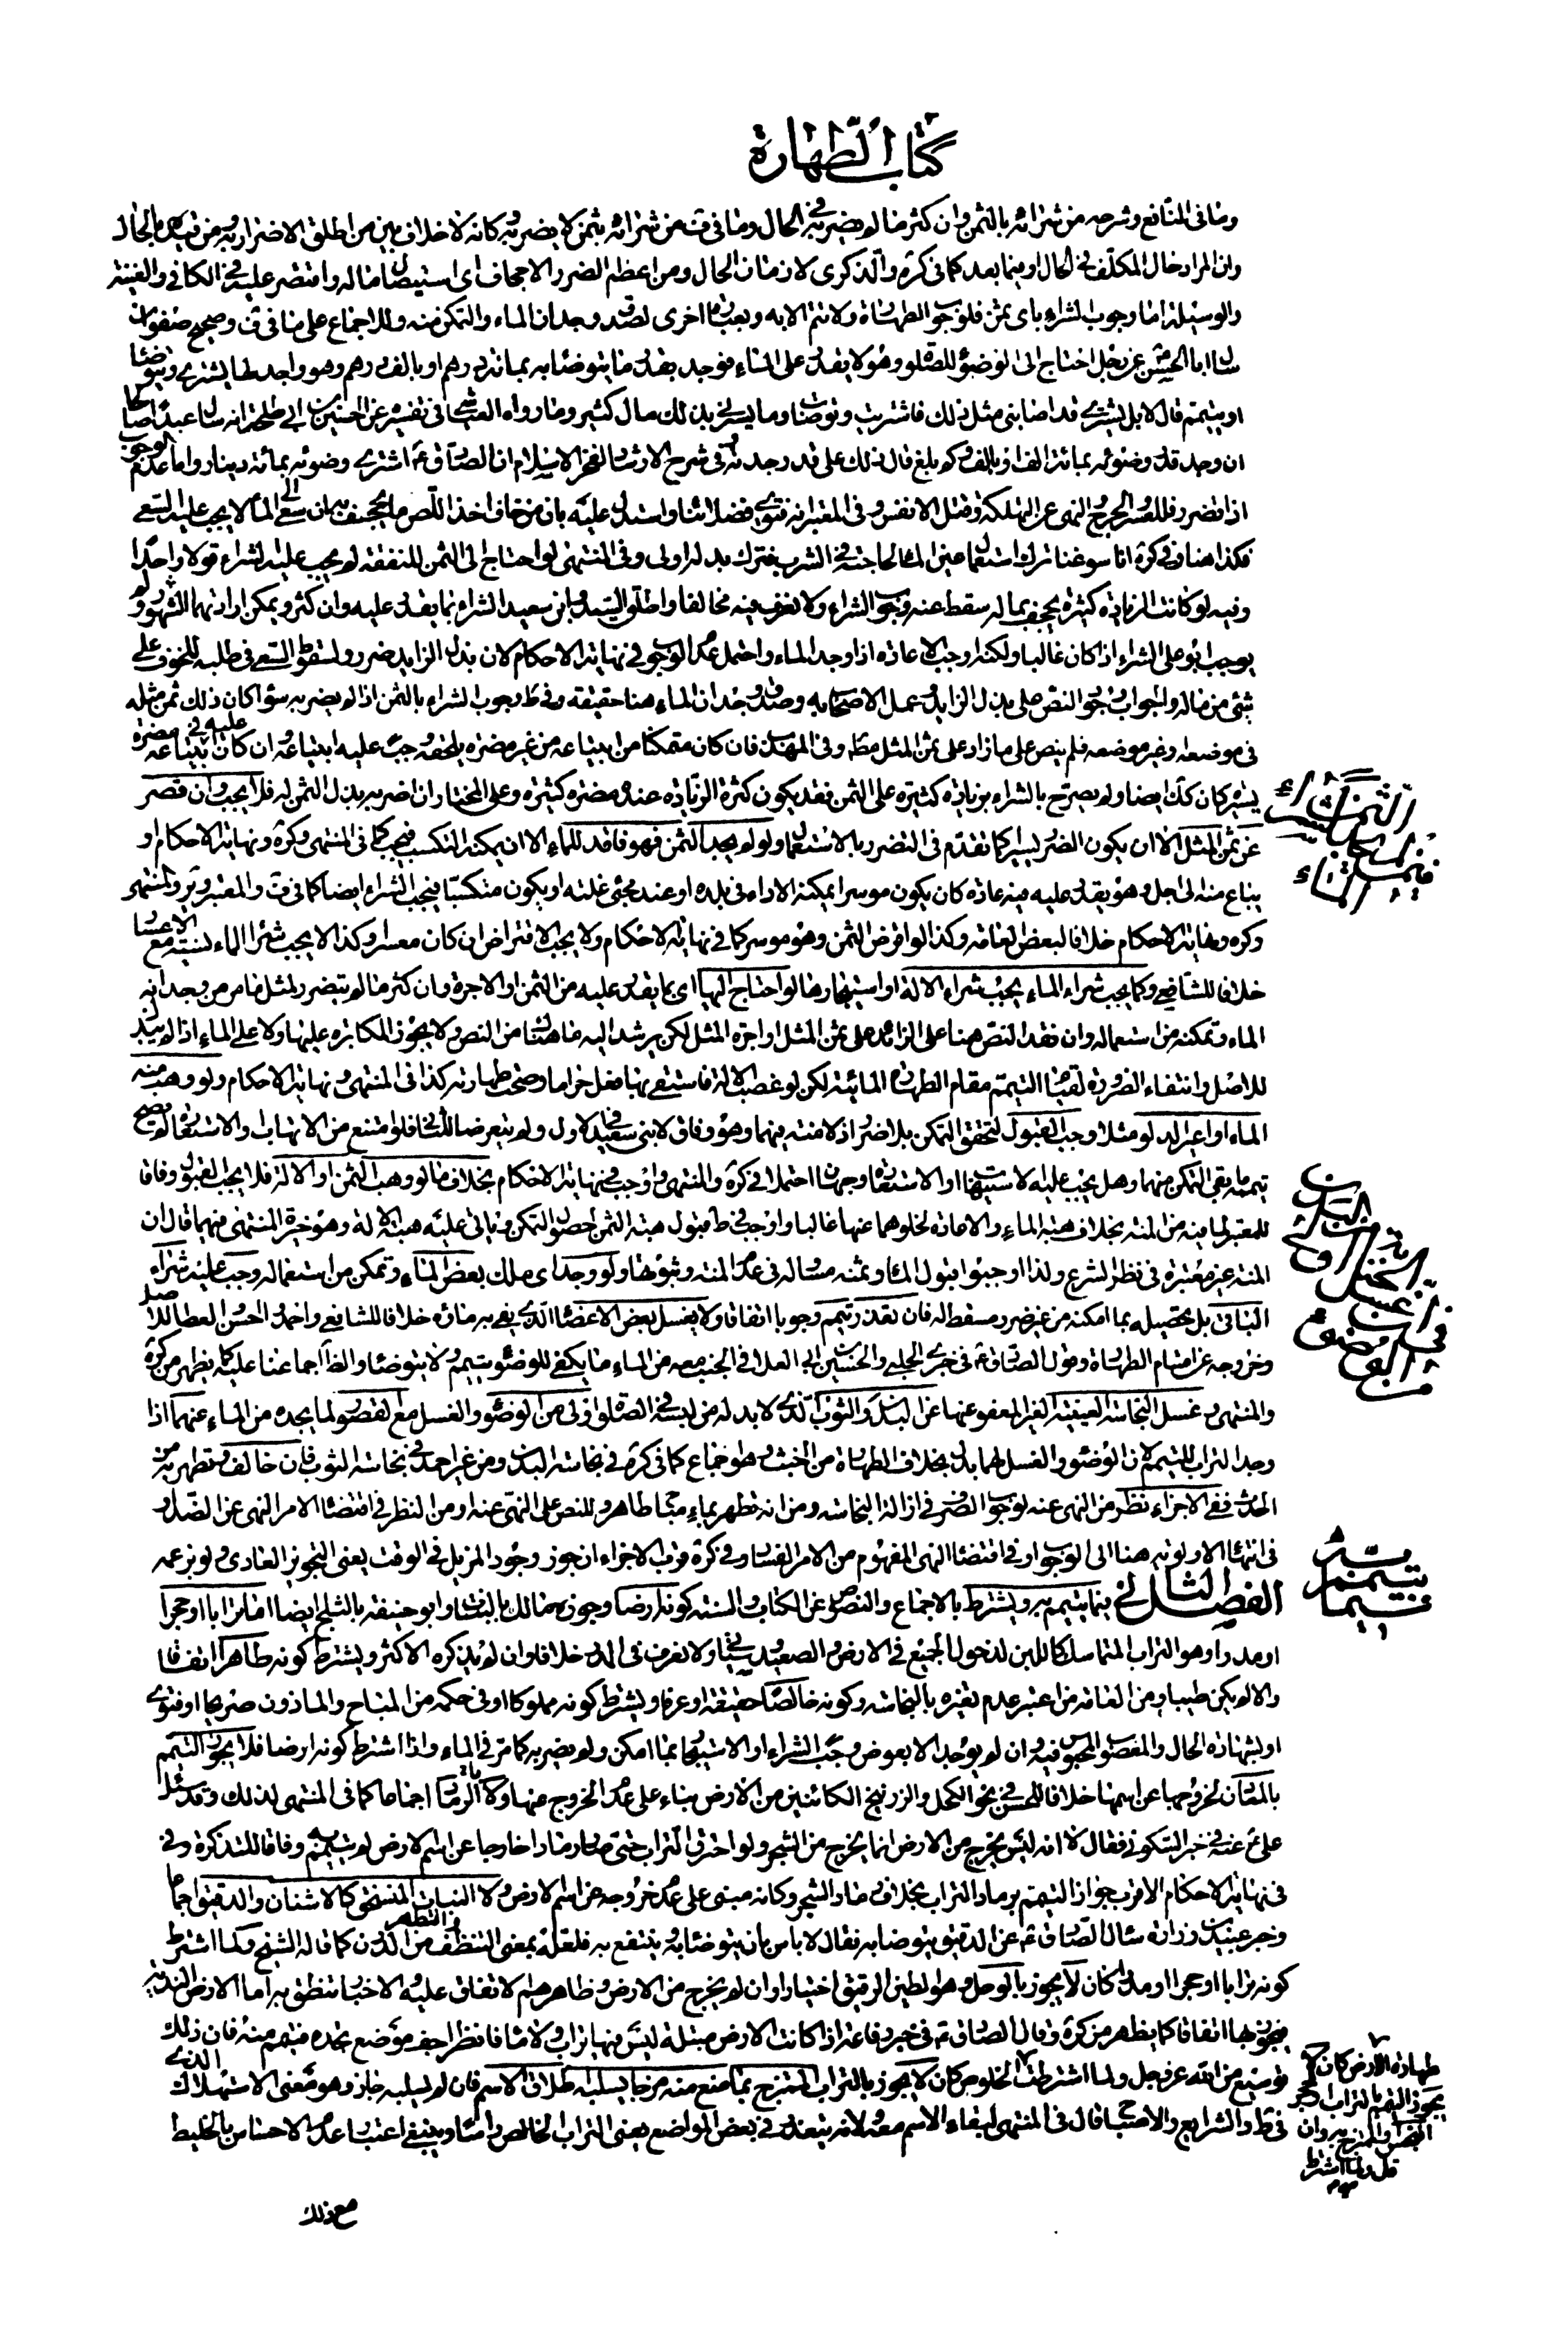 كتاب الطهارة
وما في النافع وشرحه من شرائه بالثمن وان كثر ما لم يضر به في الحال وما في ق من شرائه بثمن لا يضر به كانه لا خلاف بين من اطلق الاضرار به ومن قيده بالحال
وان المراد حال المكلف في الحال او فيما بعد كما في كرة والذكرى لا زمان الحال ومن اعظم الضرر الاجحاف اى استيصال ماله واقتصر عليه في الكافي والغنية
والوسيلة اما وجوب الشراء باى ثمن فلوجوب الطهارة ولا تتم الا به وبعبارة اخرى لصدق وجدان الماء والتمكن منه وللاجماع على ما في ف وصحيح صفوان
سال ابا الحسن ع عن رجل احتاج الى الوضوء للصلوة وهو لا يقدر على الماء فوجد بقدر ما يتوضا به بمائة درهم او بالف درهم وهو واجد لها يشترى ويتوضا
او يتيمم قال لا بل يشترى قد اصابنى مثل ذلك فاشتريت وتوضات وما يسرني بذلك مال كثير وما رواه العياشى في تفسيره عن الحسين بن ابي طلحة انه سال عبدا صالحا
ان وجد قدر وضوئه بمائة الف او بالف وكم بلغ قال ذلك على قدر جدته وفي شرح الارشاد لفخر الاسلام ان الصادق ع اشترى وضوئه بمائة دينار واما عدم الوجوب
اذا تضرر فللعسر والحرج والنهى عن التهلكة وقتل الانفس وفى المعتبر انه فتوى فضلائنا واستدل عليه بان من خاف اخذ اللص ما يجحف به ان سعى الى الماء لا يجب عليه السعى
فكذا هنا وفي كرة انا سوغنا ترك استعمال عين الماء لحاجته في الشرب فترك بدله اولى وفى المنتهى لو احتاج الى الثمن للنفقة لم يجب عليه الشراء قولا واحدا
وفيه لو كانت الزيادة كثيرة يجحف بماله سقط عنه وجوب الشراء ولا نعرف فيه مخالفا واطلق السيد وابن سعيد الشراء بما يقدر عليه وان كثر ويمكن ارادتهما المشهور ولم
يوجب ابو على الشراء اذا كان غاليا ولكنه اوجب الاعادة اذا وجد الماء واحتمل عدم الوجوب في نهاية الاحكام لان بذل الزايد ضرر ولسقوط السعى في طلبه للخوف على
شئ من ماله والجواب وجوب النص على بذل الزايد وعمل الاصحاب به وصدق وجدان الماء هنا حقيقة وفي ط وجوب الشراء بالثمن اذا لم يضر به سواء كان ذلك ثمن مثله
في موضعه او غير موضعه فلم ينص على ما زاد على ثمن المثل مطلقا وفى المهذب فان كان متمكنا من ابتياعه من غير مضرة يلحقه وجب عليه ابتياعه وان كان عليه في ابتياعه مضرة
يسيرة كان كذلك ايضا ولم يصرح بالشراء بزيادة كثيرة على الثمن فقد يكون كثرة الزيادة عنده مضرة كثيرة وعلى المختار ان اضر به بذل الثمن له فلا يجب وان قصر
عن ثمن المثل الا ان يكون الضرر يسيرا كما تقدم في التضرر بالاستعمال ولو لم يجد الثمن فهو فاقد للماء الا ان يمكنه التكسب فيجب كما في المنتهى وكرة ونهاية الاحكام او
يباع منه الى اجل وهو يقدر عليه فيه عادة كان يكون موسرا يمكنه الاداء في بلده او عند مجئ غلته او يكون متكسبا فيجب الشراء ايضا كما في ف والمعتبر وير والمنتهى
وكره ونهاية الاحكام خلافا لبعض العامة وكذا لو اقرض الثمن وهو موسر كما في نهاية الاحكام ولا يجب الاقتراض ان كان معسرا وكذا لا يجب شراء الماء نسيئة مع الاعسار
خلافا للشافعي وكما يجب شراء الماء يجب شراء الالة او استيجارها لو احتاج اليها اى بما يقدر عليه من الثمن او الاجرة وان كثر ما لم يتضرر لمثل ما مر من وجدانه
الماء وتمكنه من استعماله وان فقد النص هنا على الزائد على ثمن المثل او اجرة المثل لكن يرشد اليه ما هناك من النص ولا يجوز المكابرة عليها ولا على الماء اذا لم يبذل
للاصل وانتفاء الضرورة لقيام التيمم مقام الطهارة المائية لكن لو غصب الالة فاستقى بها فعل حراما وصحت طهارته كذا في المنتهى ونهاية الاحكام ولو وهب منه
الماء او اعير الدلو مثلا وجب القبول لتحقق التمكن بلا ضرر اذ لا منة فيهما وهو وفاق لابنى سعيد في الاول ولم يتعرضا للثاني فلو امتنع من الاتهاب والاستعارة لم يصح
تيممه ما بقى التمكن منهما وهل يجب عليه الاستيهاب او الاستعارة وجهان احتملا في كرة والمنتهى واوجب في نهاية الاحكام بخلاف ما لو وهب الثمن او الالة فلا يجب القبول وفاقا
للمعتبر لما فيه من المنة بخلاف هبة الماء والاعارة لخلوهما عنها غالبا واوجب في ط قبول هبة الثمن لحصول التمكن وياتى عليه هبة الالة وهو خيرة المنتهى فيهما قال لان
المنة غير معتبرة في نظر الشرع ولذا اوجبوا قبول الماء وثمنه مساو له في عدم المنة وثبوتها ولو وجد اى ملك بعض الماء وتمكن من استعماله وجب عليه شراء
الباقى بل تحصيله بما امكنه من غير ضرر مسقط له فان تعذر تيمم وجوبا اتفاقا ولا يغسل بعض الاعضاء الذى يفى به مائه خلافا للشافعى واحمد والحسن لعطا للاصل
وخروجه عن اقسام الطهارة وقول الصادق ع في خبرى الحلبي والحسين بن ابى العلا في الجنب معه من الماء ما يكفى للوضوء يتيمم ولا يتوضا والظاهر اجماعنا عليه كما يظهر من كرة
والمنتهى وغسل النجاسة العينية الغير المعفو عنها عن البدن والثوب الذى لا بد له من لبسه في الصلوة اولى من الوضوء والغسل مع القصور لما يجده من الماء عنهما اذا
وجد التراب للتيمم لان الوضوء والغسل لهما بدل بخلاف الطهارة من الخبث وهو اجماع كما في كرة في نجاسة البدن ومن غير احمد في نجاسة الثوب فان خالف وتطهر به من
الحدث ففى الاجزاء نظر من النهى عنه لوجوب الصرف في ازالة النجاسة ومن انه تطهر بماء مباح طاهر وللنص على النهى عنه ومن النظر في اقتضاء الامر النهى عن الضد او
في انتهاء الاولوية هنا الى الوجوب او في اقتضاء النهى المفهوم من الامر الفساد وفي كرة قرب الاجزاء ان جوز وجود المزيل في الوقت يعنى التجويز العادى ولو بزعمه
الفصل الثاني فيما يتيمم به ويشترط بالاجماع والنصوص عن الكتاب والسنة كونه ارضا وجوزه مالك بالنبات وابو حنيفة بالثلج ايضا اما ترابا او حجرا
او مدرا وهو التراب المتماسك كاللبن لدخول الجميع في الارض والصعيد ولا نعرف في المدر خلافا وان لم يذكره الاكثر ويشترط كونه طاهرا اتفاقا
والا لم يكن طيبا ومن العامة من اعتبر عدم تغيره بالنجاسة وكونه خالصا حقيقة او عرفا ويشترط كونه مملوكا او في حكمه من المباح والماذون صريحا او فحوى
او بشهادة الحال والمغصوب المحبوس فيه وان لم يوجد الا بعوض وجب الشراء او الاستيجار بما امكن ولم يضر به كما مر في الماء واذا اشترط كونه ارضا فلا يجوز التيمم
بالمعادن لخروجها عن اسمها خلافا للحسن في نحو الكحل والزرنيخ الكائنين من الارض بناء على عدم الخروج عنها ولا بالرماد اجماعا كما في المنتهى لذلك وقد سئل
على ع عنه في خبر السكوني فقال لا انه ليس يخرج من الارض انما يخرج من الشجر ولو احترق التراب حتى صار رمادا خارجا عن اسم الارض لم يتيمم به وفاقا للتذكرة وفي
في نهاية الاحكام الاقرب جواز التيمم برماد التراب بخلاف رماد الشجر وكانه مبنى على عدم خروجه عن اسم الارض ولا النبات المنسحق كالاشنان والدقيق اجماعا
وخبر عبيد بن زرارة سئال الصادق ع عن الدقيق يتوضا به فقال لا باس بان يتوضا به وينتفع به فلعله بمعنى التنظف والتطهر من الدرن كما قاله الشيخ ولما اشترط
كونه ترابا او حجرا او مدرا كان لا يجوز بالوحل وهو الطين الرقيق اختيارا وان لم يخرج من الارض وظاهرهم الاتفاق عليه والاخبار تنطق به اما الارض الندية
فيجوز بها اتفاقا كما يظهر من كرة وقال الصادق ع في خبر رفاعة اذا كانت الارض مبتلة ليس فيها تراب ولا ماء فانظر اجف موضع تجده فتيمم منه فان ذلك
توسيع من الله عز وجل ولما اشترطت الخلوص كان لا يجوز بالتراب الممتزج بما منع منه مزجا يسلبه اطلاق الاسم فان لم يسلبه جاز وهو معنى الاستهلاك الذى
في ط والشرايع والاصباح قال في المنتهى لبقاء الاسم معه ولانه يتعذر في بعض المواضع يعنى التراب الخالص واما وينبغى اعتبار عدم الاحساس بالخليط
مع ذلك
البدن
فيما يتيمم به
طهارة الارض كان لا
يجوز التيمم بالتراب او الحجر
النجس والممتزج به وان
قل ولما اشترط